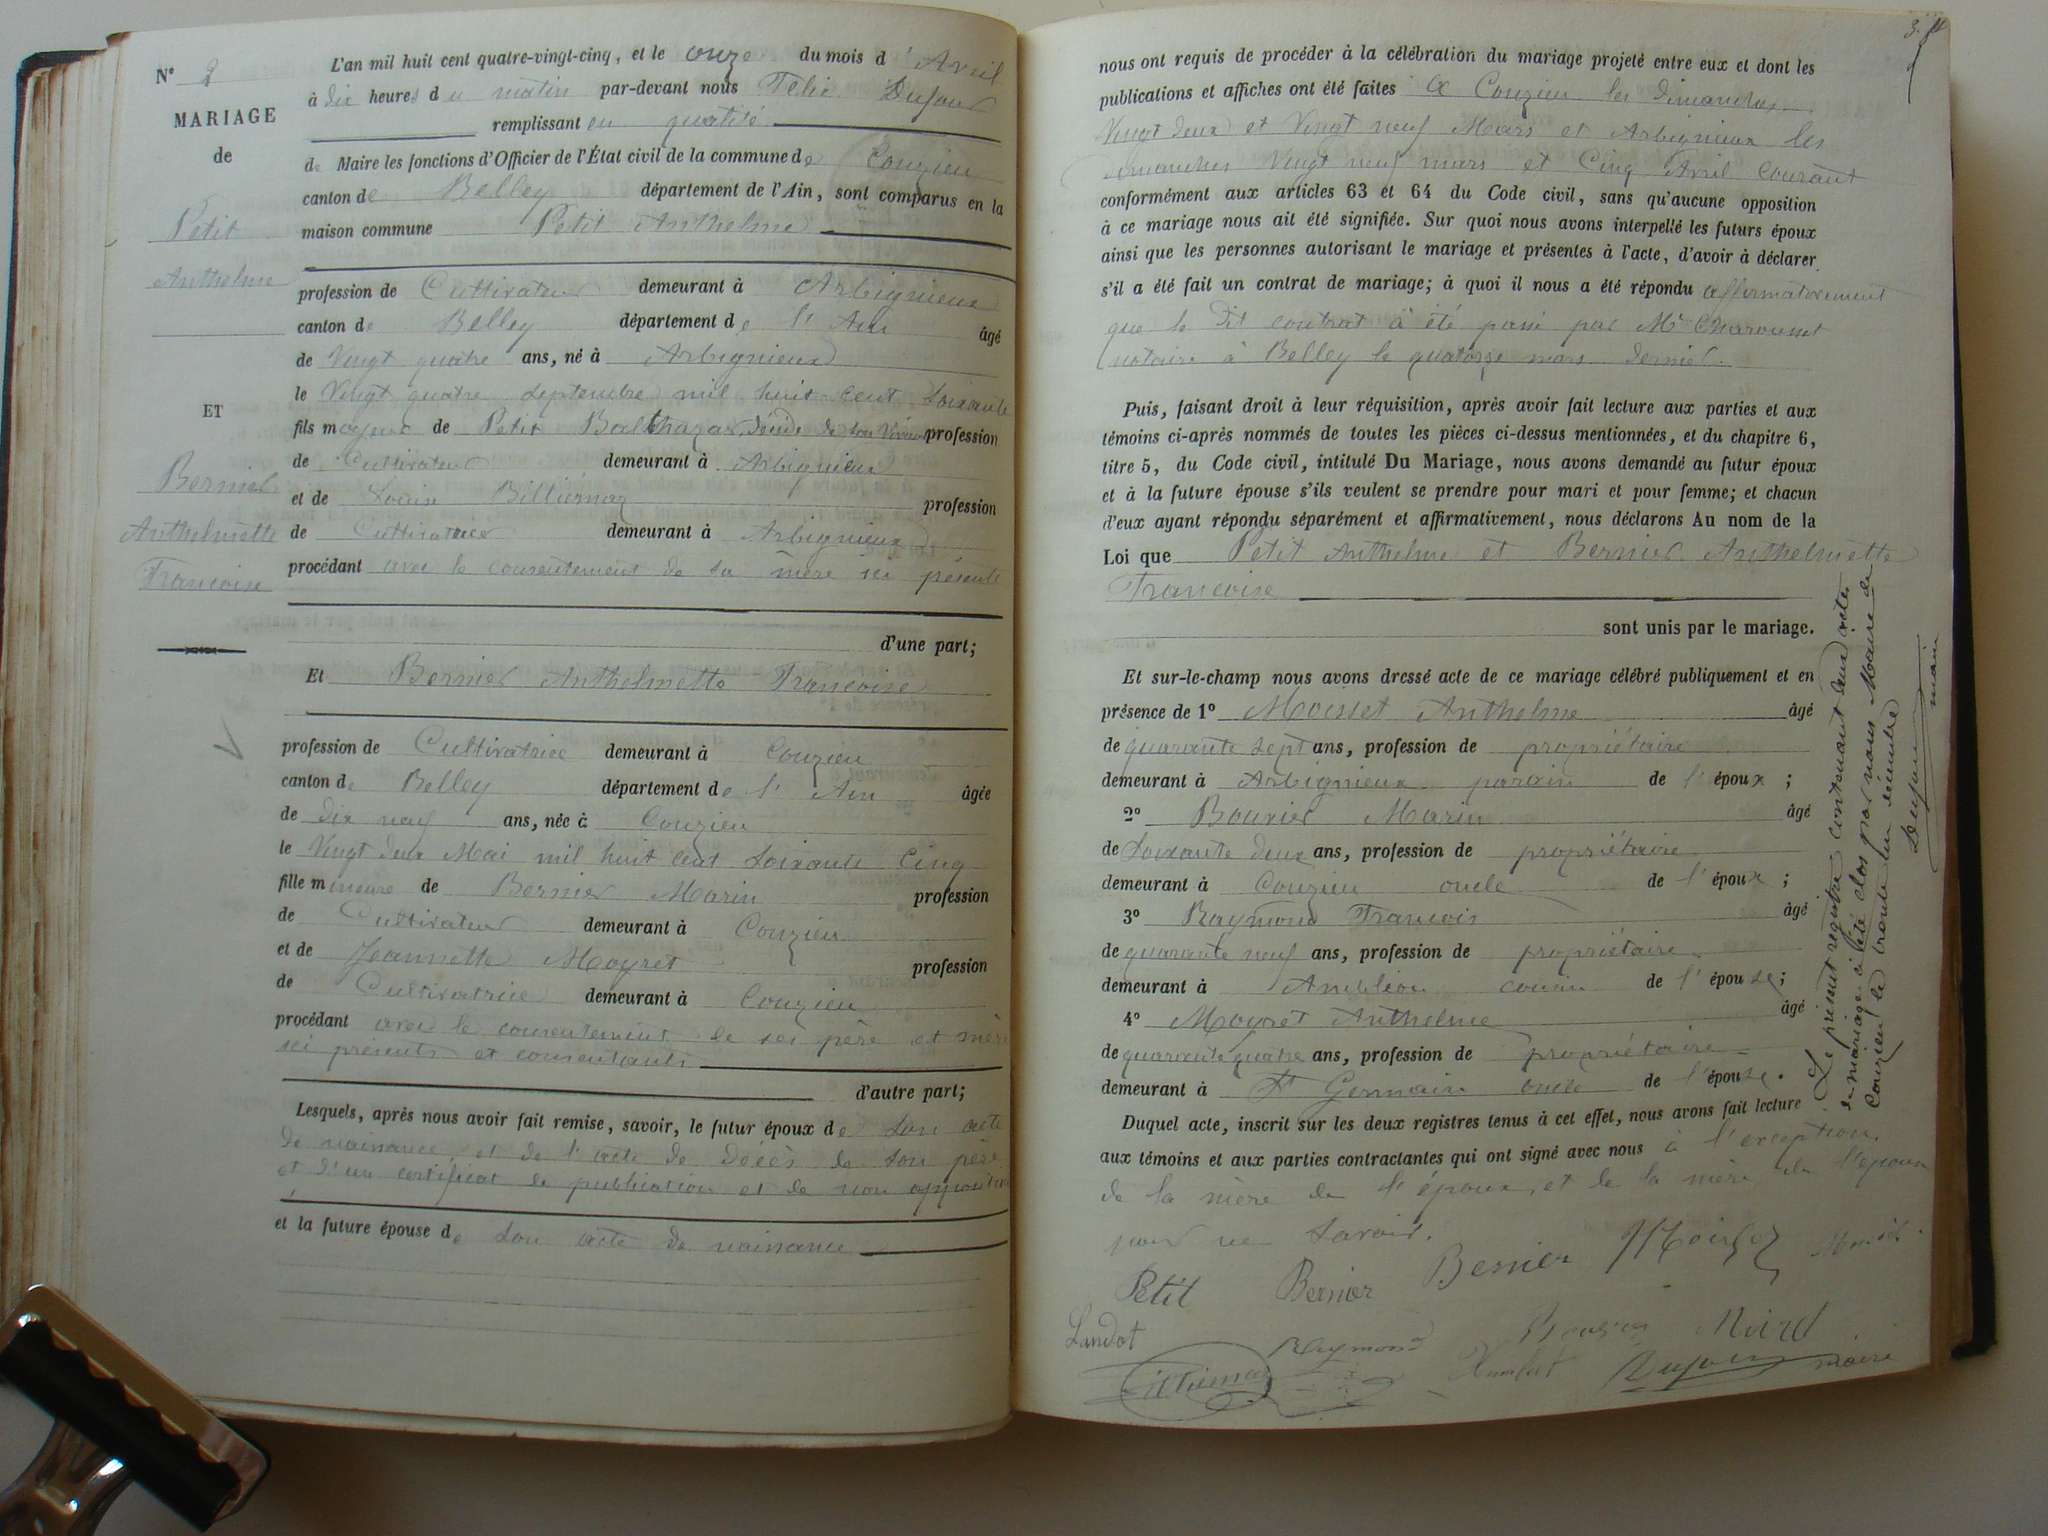 N° 2
MARIAGE
de
Petit
Anthelme
ET
Bernier
Anthelmette
Francoise
L'an mil huit cent quatre-vingt-cinq, et le onze du mois d'Avril
à dix heures du matin par-devant nous Felix Dufour
remplissant en qualité
de Maire les fonctions d'Officier de l'État civil de la commune de Conzieu
canton de Belley département de l'Ain, sont comparus en la
maison commune Petit Anthelme
profession de Cultivateur demeurant à Arbignieux
canton de Belley département de l'Ain âgé
de Vingt quatre ans, né à Arbignieux
le Vingt quatre Septembre mil huit cent Soixante
fils majeur de Petit Balthazar, décédé de son Vivant profession
de Cultivateur demeurant à Arbignieux
et de Louise Billiemaz profession
de Cultivatrice demeurant à Arbignieux
procédant avec le consentement de sa mère ici présente
d'une part;
Et Bernier Anthelmette Francoise
profession de Cultivatrice demeurant à Conzieu
canton de Belley département de l'Ain âgée
de dix neuf ans, née à Conzieu
le Vingt deux Mai mil huit cent Soixante Cinq
fille mineure de Bernier Marin profession
de Cultivateur demeurant à Conzieu
et de Jeannette Moyret profession
de Cultivatrice demeurant à Conzieu
procédant avec le consentement de ses père et mère
ici présents et consentants
d'autre part;
Lesquels, après nous avoir fait remise, savoir, le futur époux de son acte
de naissance, et de l'acte de décès de son père
et d'un certificat de publication et de non opposition
et la future épouse de son acte de naissance
nous ont requis de procéder à la célébration du mariage projeté entre eux et dont les
publications et affiches ont été faites à Conzieu les dimanches
Vingt deux et Vingt neuf Mars et Arbignieux les
dimanches Vingt neuf mars et Cinq Avril Courant
conformément aux articles 63 et 64 du Code civil, sans qu'aucune opposition
à ce mariage nous ait été signifiée. Sur quoi nous avons interpellé les futurs époux
ainsi que les personnes autorisant le mariage et présentes à l'acte, d'avoir à déclarer
s'il a été fait un contrat de mariage; à quoi il nous a été répondu affirmativement
que le dit contrat a été passé par Me Charousset
notaire à Belley le quatorze mars dernier.
Puis, faisant droit à leur réquisition, après avoir fait lecture aux parties et aux
témoins ci-après nommés de toutes les pièces ci-dessus mentionnées, et du chapitre 6,
titre 5, du Code civil, intitulé Du Mariage, nous avons demandé au futur époux
et à la future épouse s'ils veulent se prendre pour mari et pour femme; et chacun
d'eux ayant répondu séparément et affirmativement, nous déclarons Au nom de la
Loi que Petit Anthelme et Bernier Anthelmette
Francoise
sont unis par le mariage.
Et sur-le-champ nous avons dressé acte de ce mariage célébré publiquement et en
présence de 1° Moisset Anthelme âgé
de quarante sept ans, profession de propriétaire
demeurant à Arbignieux parain de l'époux;
2° Bouvier Marin âgé
de Soixante deux ans, profession de propriétaire
demeurant à Conzieu oncle de l'époux;
3° Raymond Francois âgé
de quarante neuf ans, profession de propriétaire
demeurant à Ambléon cousin de l'épouse;
4° Moyret Anthelme âgé
de quarante quatre ans, profession de propriétaire
demeurant à St Germain oncle de l'épouse.
Duquel acte, inscrit sur les deux registres tenus à cet effet, nous avons fait lecture
aux témoins et aux parties contractantes qui ont signé avec nous à l'exception
de la mère de l'époux, et de la mère de l'épouse
pour ne Savoir.
Petit Bernier Bernier
Landot Raymond
Billiemaz Humbert Dufour maire
Le présent registre contenant deux actes
de mariage a été clos par nous Maire de
Conzieu le trente un décembre
Dufour maire